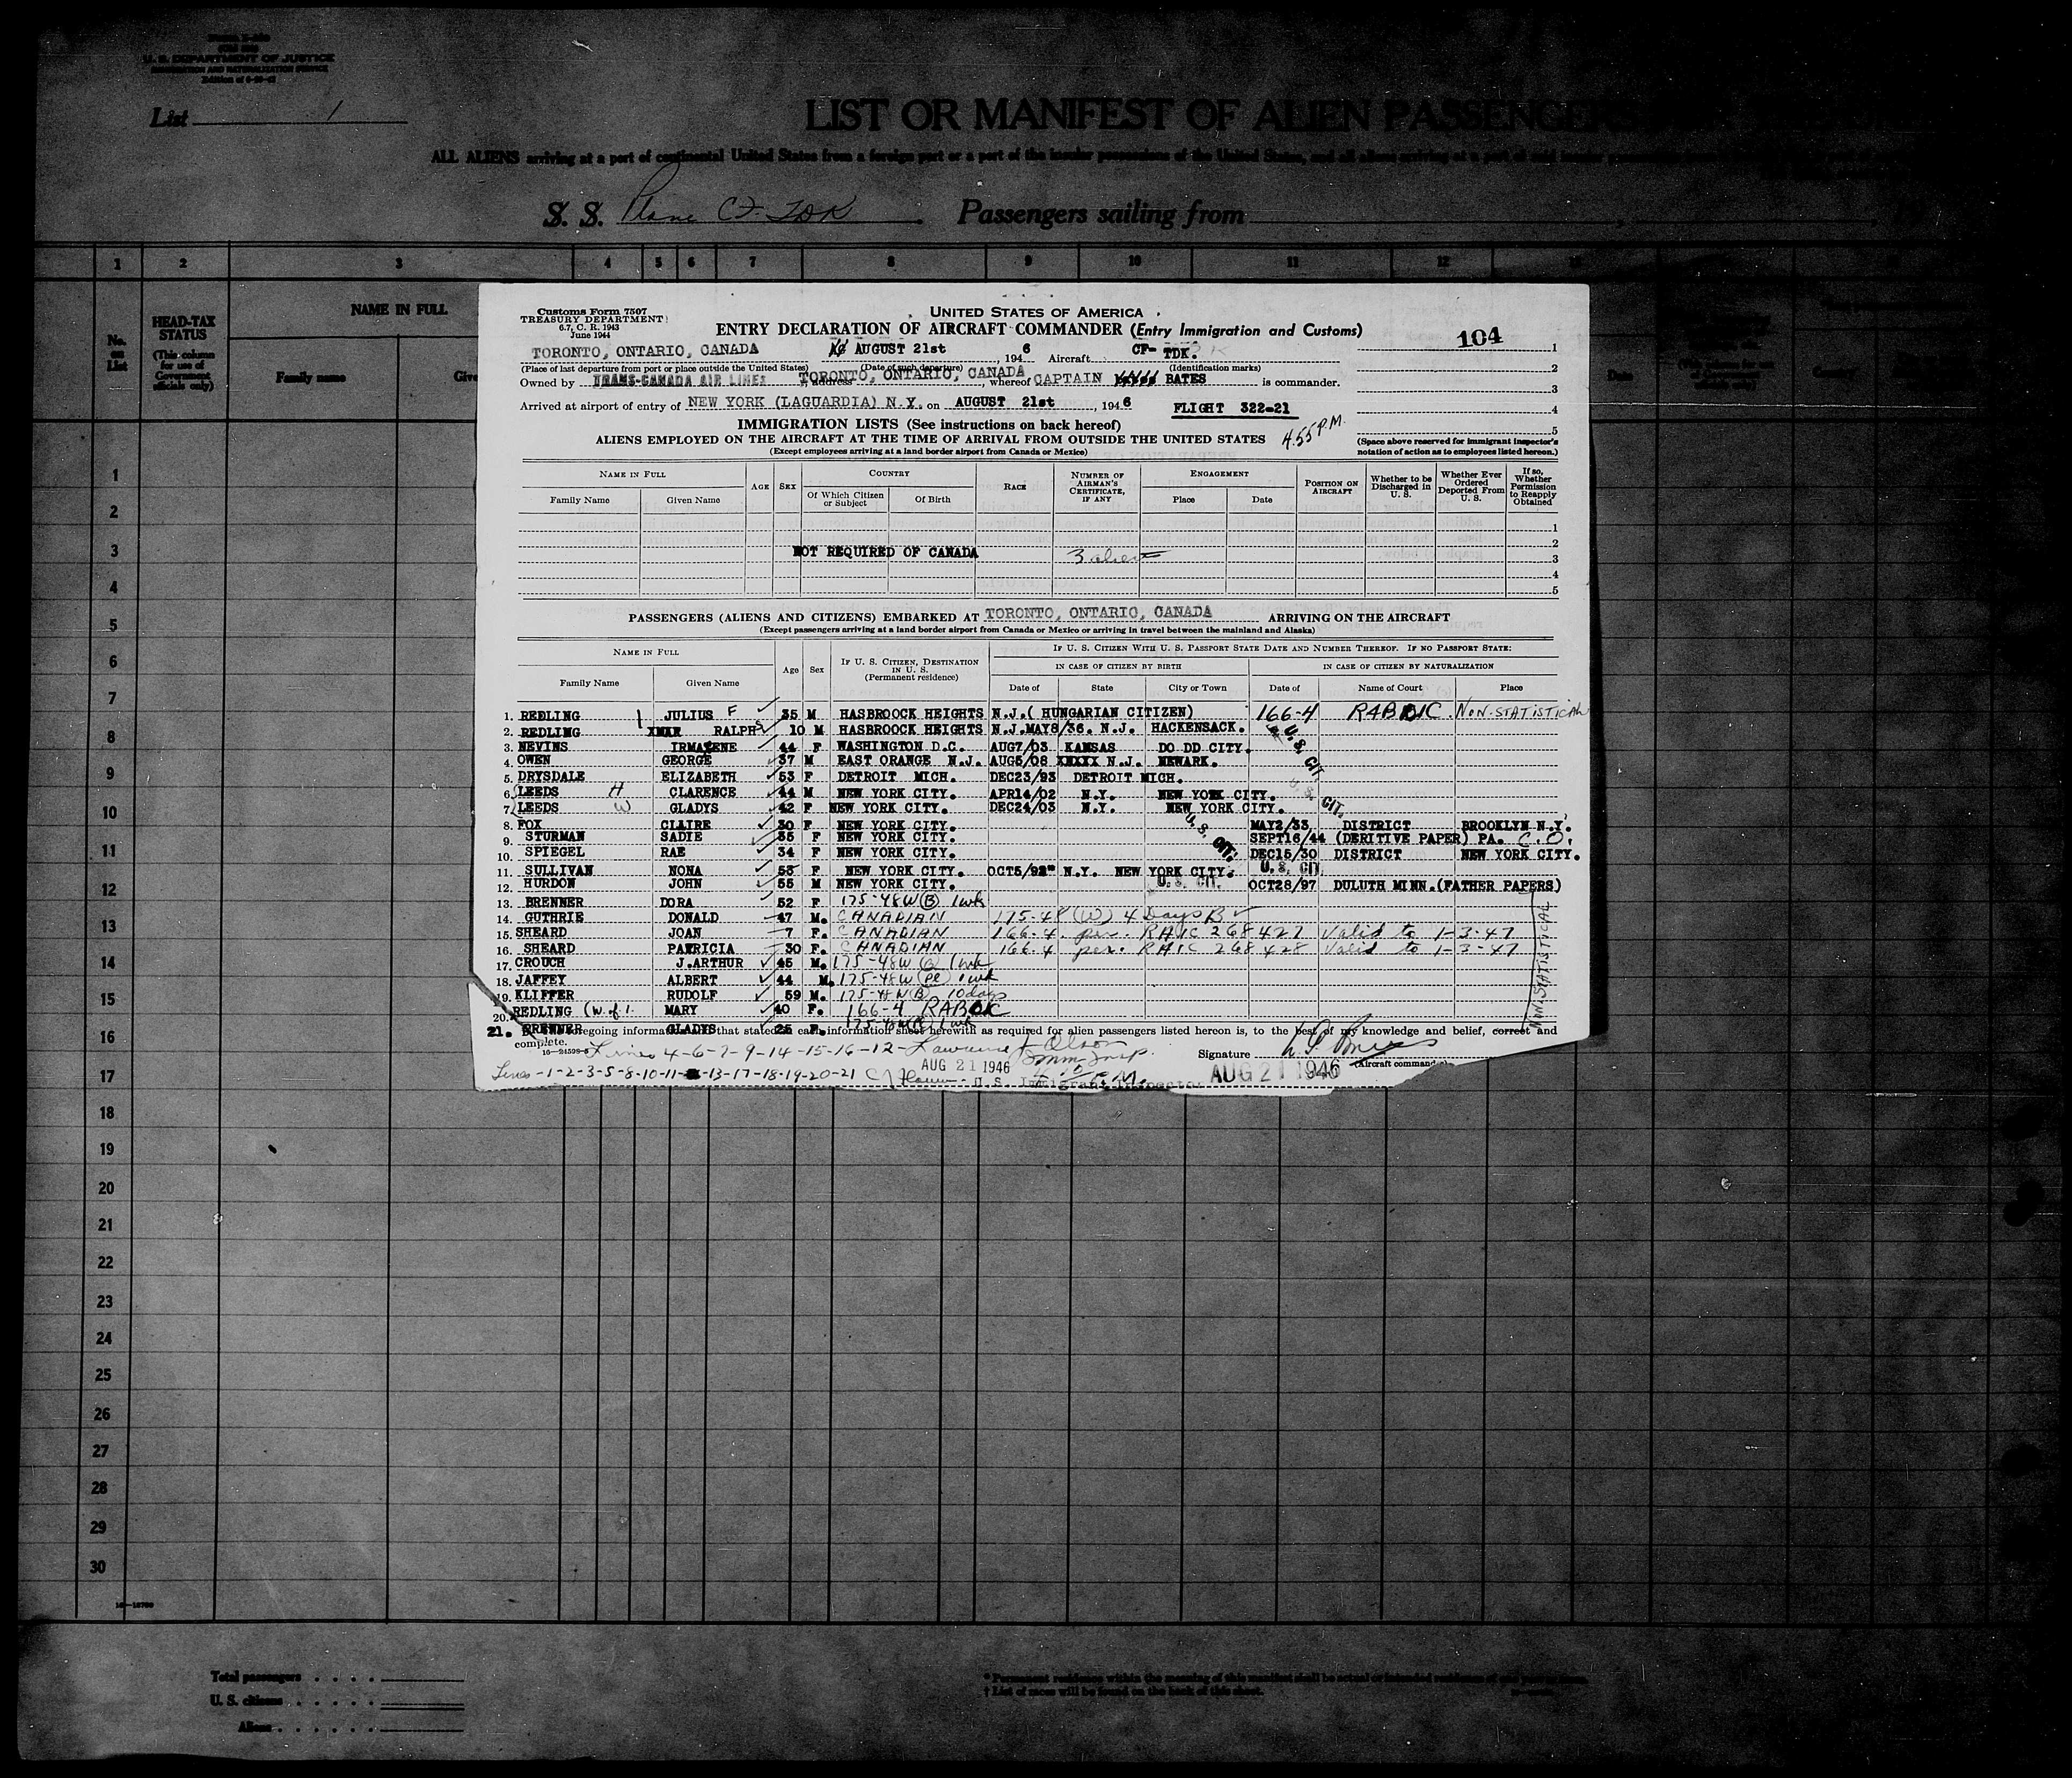 U. S. DEPARTMENT OF JUSTICE
IMMIGRATION AND NATURALIZATION SERVICE
List 1
LIST OR MANIFEST OF ALIEN PASSENGERS
ALL ALIENS arriving at a port of continental United States from a foreign port or a port of the insular possessions of the United States, and all aliens arriving at a port of said insular
S. S. Plane CF-TDK Passengers sailing from
1 2 3 4 5 6 7 8 9 10 11 12 13
No. on List
HEAD-TAX STATUS
(This column for use of Government officials only)
NAME IN FULL
Family name
Give
Date
Country
Customs Form 7507
TREASURY DEPARTMENT
6.7, C. R. 1943
June 1944
UNITED STATES OF AMERICA
ENTRY DECLARATION OF AIRCRAFT COMMANDER (Entry Immigration and Customs)
104
TORONTO, ONTARIO, CANADA AUGUST 21st, 1946 Aircraft CF- TDK.
(Place of last departure from port or place outside the United States) (Date of such departure) (Identification marks)
Owned by TRANS-CANADA AIR LINES, address TORONTO, ONTARIO, CANADA, whereof CAPTAIN BATES is commander.
Arrived at airport of entry of NEW YORK (LAGUARDIA) N.Y. on AUGUST 21st, 1946 FLIGHT 322-21
4.55 P.M.
1
2
3
4
5
(Space above reserved for immigrant inspector's notation of action as to employees listed hereon.)
IMMIGRATION LISTS (See instructions on back hereof)
ALIENS EMPLOYED ON THE AIRCRAFT AT THE TIME OF ARRIVAL FROM OUTSIDE THE UNITED STATES
(Except employees arriving at a land border airport from Canada or Mexico)
NAME IN FULL AGE SEX COUNTRY RACE NUMBER OF AIRMAN'S CERTIFICATE, IF ANY ENGAGEMENT POSITION ON AIRCRAFT Whether to be Discharged in U. S. Whether Ever Ordered Deported From U. S. If so, Whether Permission to Reapply Obtained
Family Name Given Name Of Which Citizen or Subject Of Birth Place Date
1
2
NOT REQUIRED OF CANADA 3 aliens
3
4
5
PASSENGERS (ALIENS AND CITIZENS) EMBARKED AT TORONTO, ONTARIO, CANADA ARRIVING ON THE AIRCRAFT
(Except passengers arriving at a land border airport from Canada or Mexico or arriving in travel between the mainland and Alaska)
NAME IN FULL Age Sex IF U. S. CITIZEN, DESTINATION IN U. S. (Permanent residence) IF U. S. CITIZEN WITH U. S. PASSPORT STATE DATE AND NUMBER THEREOF. IF NO PASSPORT STATE:
IN CASE OF CITIZEN BY BIRTH IN CASE OF CITIZEN BY NATURALIZATION
Family Name Given Name Date of State City or Town Date of Name of Court Place
1. REDLING JULIUS F 35 M HASBROOCK HEIGHTS N.J. (HUNGARIAN CITIZEN) 166-4 RABOIC NON-STATISTICAL
2. REDLING RALPH S 10 M HASBROOCK HEIGHTS N.J. MAY8/36. N.J. HACKENSACK.
3. NEVINS IRMAXENE 44 F WASHINGTON D.C. AUG7/03 KANSAS DO DD CITY. U. S. CIT.
4. OWEN GEORGE 37 M EAST ORANGE N.J. AUG5/08 XXXXX N.J. NEWARK.
5. DRYSDALE ELIZABETH 53 F DETROIT MICH. DEC23/93 DETROIT MICH.
6. LEEDS H CLARENCE 44 M NEW YORK CITY. APR14/02 N.Y. NEW YORK CITY.
7. LEEDS W GLADYS 42 F NEW YORK CITY. DEC24/03 N.Y. NEW YORK CITY. U. S. CIT.
8. FOX CLAIRE 30 F NEW YORK CITY. MAY2/33 DISTRICT BROOKLYN N.Y.
9. STURMAN SADIE 35 F NEW YORK CITY. SEPT16/44 (DERITIVE PAPER) PA. C.O.
10. SPIEGEL RAE 34 F NEW YORK CITY. U. S. CIT. DEC15/30 DISTRICT NEW YORK CITY.
11. SULLIVAN NONA 53 F NEW YORK CITY. OCT5/92 N.Y. NEW YORK CITY. U. S. CIT
12. HURDON JOHN 55 M NEW YORK CITY. U. S. CIT. OCT28/97 DULUTH MINN. (FATHER PAPERS)
13. BRENNER DORA 52 F 175-48W (B) 1 wk
14. GUTHRIE DONALD 47 M. CANADIAN 175-48 (W) 4 Days B
15. SHEARD JOAN 7 F. CANADIAN 166-4 per. RHIC 268427 Valid to 1-3-47
16. SHEARD PATRICIA 30 F. CANADIAN 166-4 per. RHIC 268428 Valid to 1-3-47
17. CROUCH J.ARTHUR 45 M. 175-48W (B) 1 wk
18. JAFFEY ALBERT 44 M. 175-48W (Pl) 1 wk
19. KLIFFER RUDOLF 59 M. 175-48W (B) 10 days
20. REDLING (W. of 1. MARY 40 F. 166-4 RABOIC
21. BRENNER GLADYS 25 F. 175-48W (P) 1 wk
NON-STATISTICAL
foregoing information and that stated in each information sheet herewith as required for alien passengers listed hereon is, to the best of my knowledge and belief, correct and complete.
16-24598-3
Lines 4-6-7-9-14-15-16-12- Lawrence F Olson
Imm. Insp.
Signature
(Aircraft comman
Lines -1-2-3-5-8-10-11-13-17-18-19-20-21
AUG 21 1946
U. S. Immigrant Inspector
AUG 21 1946
1
2
3
4
5
6
7
8
9
10
11
12
13
14
15
16
17
18
19
20
21
22
23
24
25
26
27
28
29
30
Total passengers
U. S. citizens
Aliens
* Permanent residence within the meaning of this manifest shall be actual or intended residence of one year or more.
† List of races will be found on the back of this sheet.